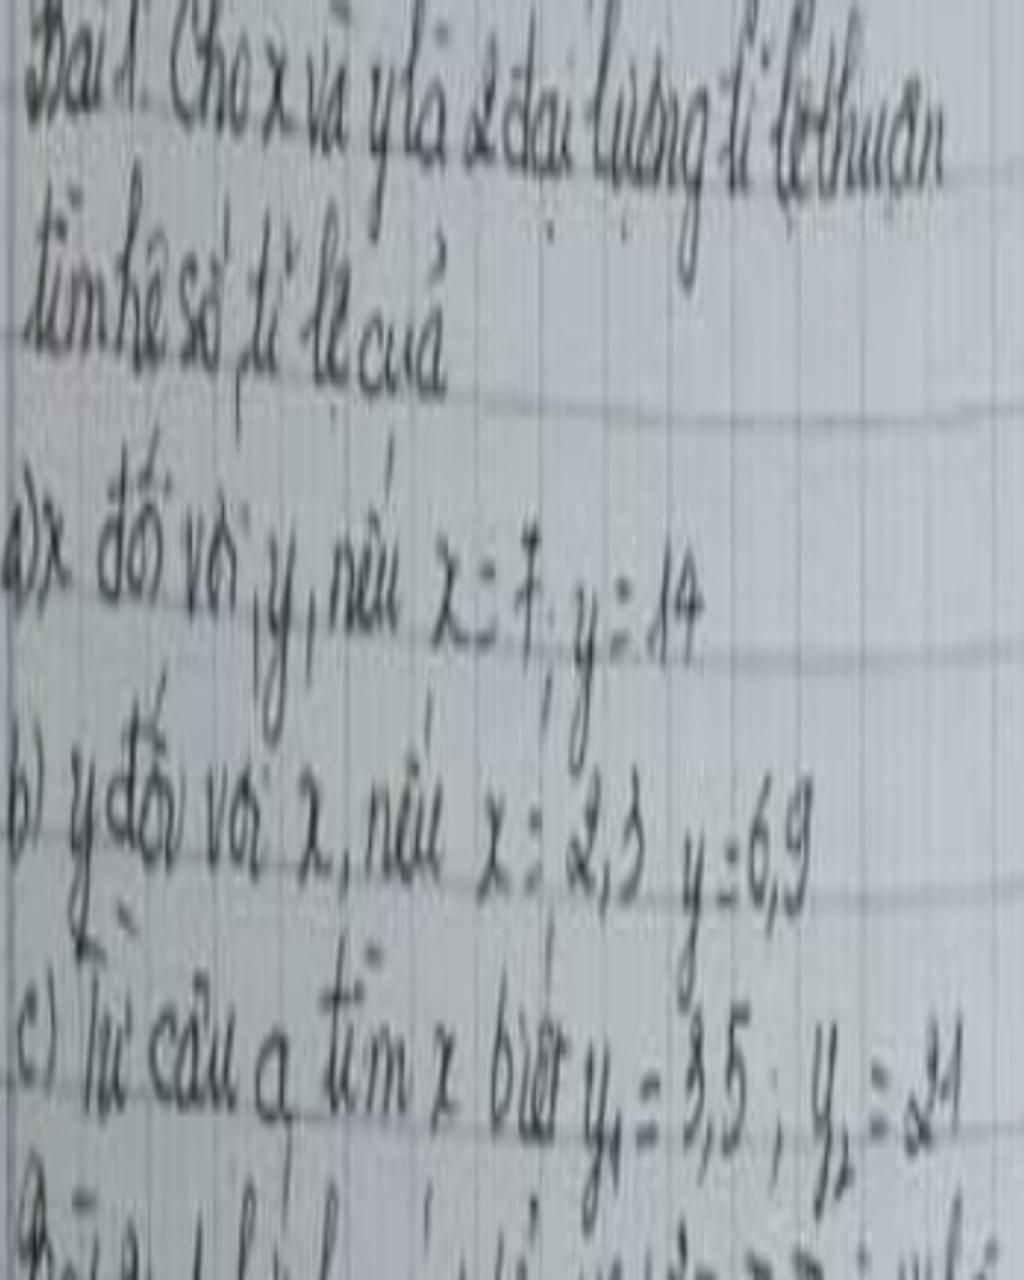 Bài 1. Cho x và y là 2 đại lượng tỉ lệ thuận
tìm hệ số tỉ lệ của
a) x đối với y, nếu x = 7; y = 14
b) y đối với x, nếu x = 2,3 y = 6,9
c) Từ câu a tìm x biết y₁ = 3,5; y₂ = 21